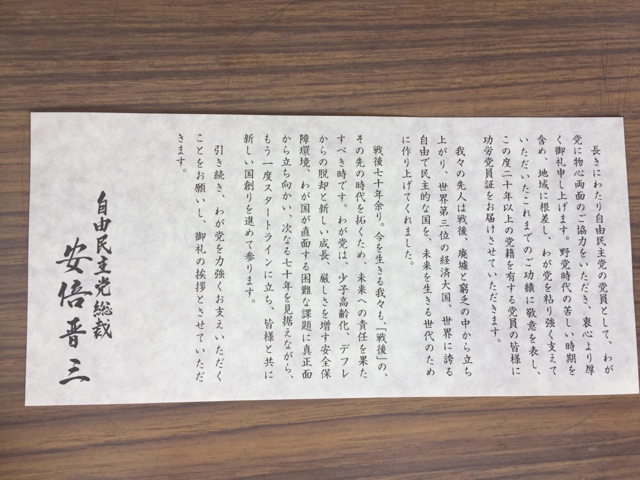 長きにわたり自由民主党の党員として、わが
党に物心両面のご協力をいただき、衷心より厚
く御礼申し上げます。野党時代の苦しい時期を
含め、地域に根差し、わが党を粘り強く支えて
いただいたこれまでのご功績に敬意を表し、
この度二十年以上の党籍を有する党員の皆様に
功労党員証をお届けさせていただきます。
我々の先人は戦後、廃墟と窮乏の中から立ち
上がり、世界第三位の経済大国、世界に誇る
自由で民主的な国を、未来を生きる世代のため
に作り上げてくれました。
戦後七十年余り。今を生きる我々も、「戦後」の、
その先の時代を拓くため、未来への責任を果た
すべき時です。わが党は、少子高齢化、デフレ
からの脱却と新しい成長、厳しさを増す安全保
障環境、わが国が直面する困難な課題に真正面
から立ち向かい、次なる七十年を見据えながら、
もう一度スタートラインに立ち、皆様と共に
新しい国創りを進めて参ります。
引き続き、わが党を力強くお支えいただく
ことをお願いし、御礼の挨拶とさせていただ
きます。
自由民主党総裁
安倍晋三